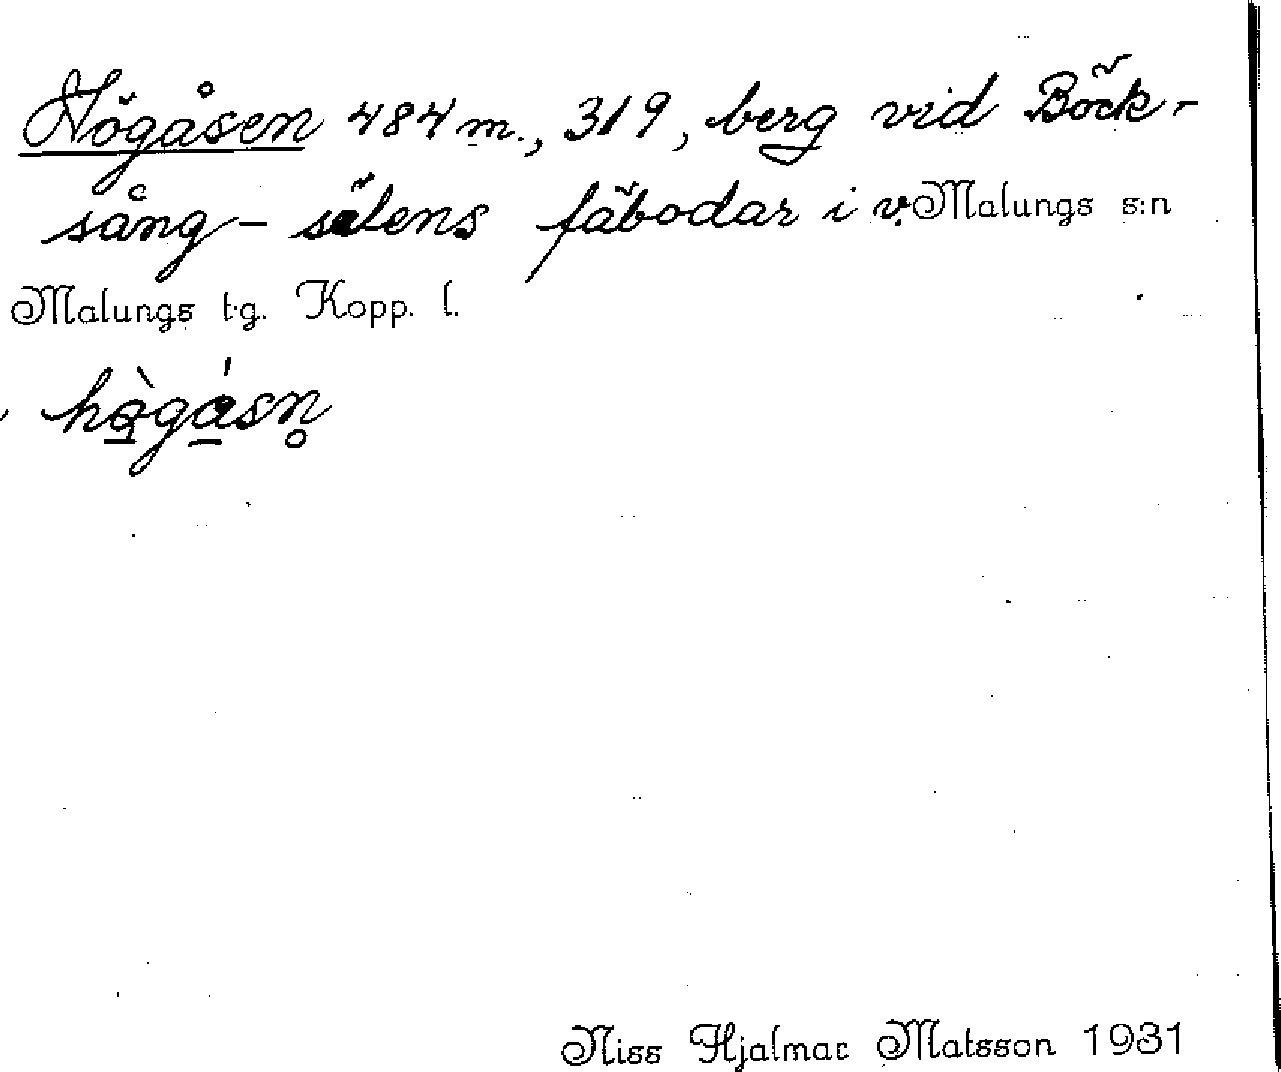 Högåsen 484 m., 319, berg vid Böck-
sång-sätens fäbodar i v. Malungs s:n
Malungs t.g. Kopp. l.
hò̱gá̱sn̥
Niss Hjalmar Matsson 1931